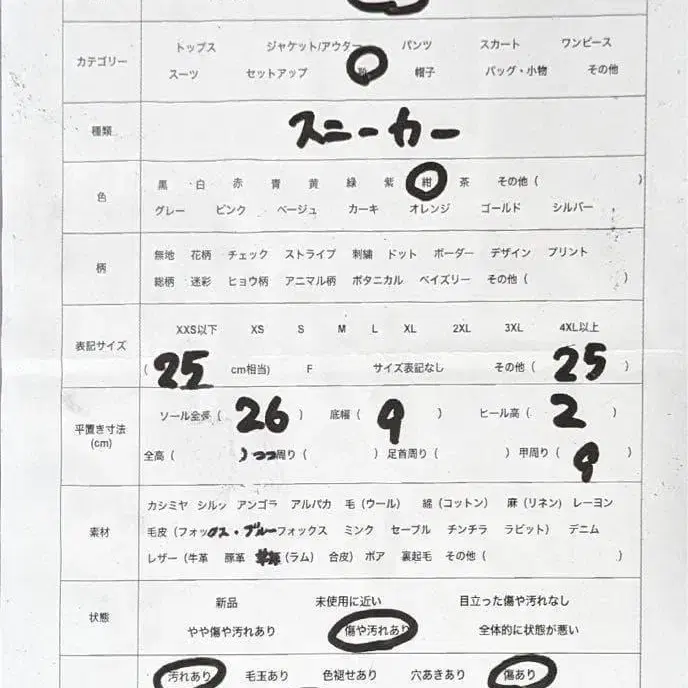 カテゴリー
トップス ジャケット/アウター パンツ スカート ワンピース
スーツ セットアップ 帽子 バッグ・小物 その他
種類 スニーカー
色
黒 白 赤 青 黄 緑 紫 紺 茶 その他 ( )
グレー ピンク ベージュ カーキ オレンジ ゴールド シルバー
柄
無地 花柄 チェック ストライプ 刺繍 ドット ボーダー デザイン プリント
総柄 迷彩 ヒョウ柄 アニマル柄 ボタニカル ペイズリー その他 ( )
表記サイズ
XXS以下 XS S M L XL 2XL 3XL 4XL以上
( 25 cm相当) F サイズ表記なし その他 ( 25 )
平置き寸法
(cm)
ソール全長 ( 26 ) 底幅 ( 9 ) ヒール高 ( 2 )
全高 ( ) つつ周り ( ) 足首周り ( ) 甲周り ( 9 )
素材
カシミヤ シルッ アンゴラ アルパカ 毛 (ウール) 綿 (コットン) 麻 (リネン) レーヨン
毛皮 (フォックス・ブルーフォックス ミンク セーブル チンチラ ラビット) デニム
レザー (牛革 豚革 (ラム) 合皮) ボア 裏起毛 その他 ( )
状態
新品 未使用に近い 目立った傷や汚れなし
やや傷や汚れあり 傷や汚れあり 全体的に状態が悪い
汚れあり 毛玉あり 色褪せあり 穴あきあり 傷あり